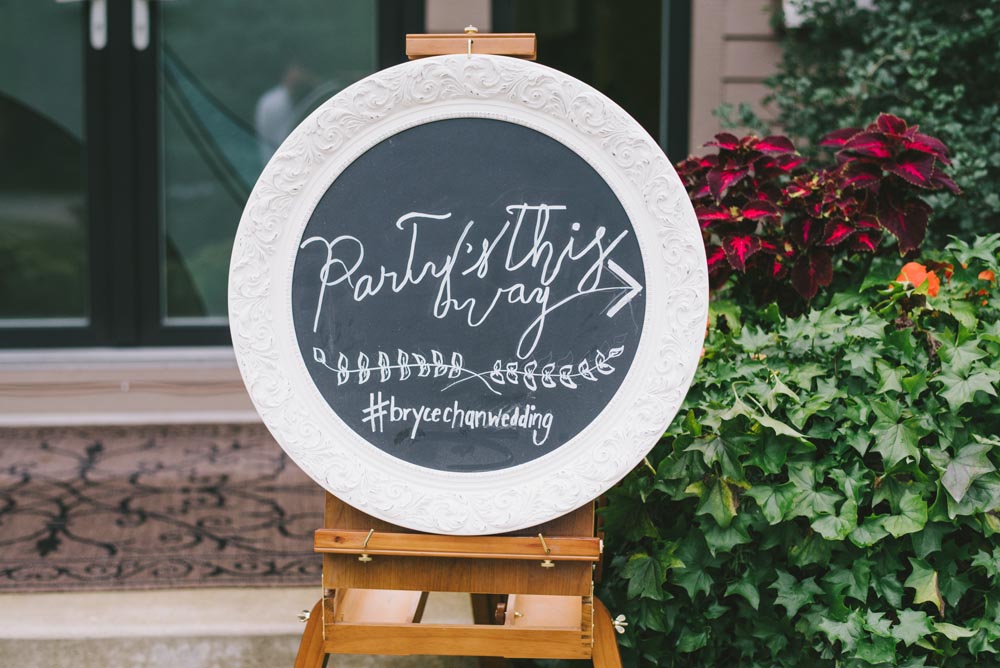 Party's This
way
#brycechanwedding